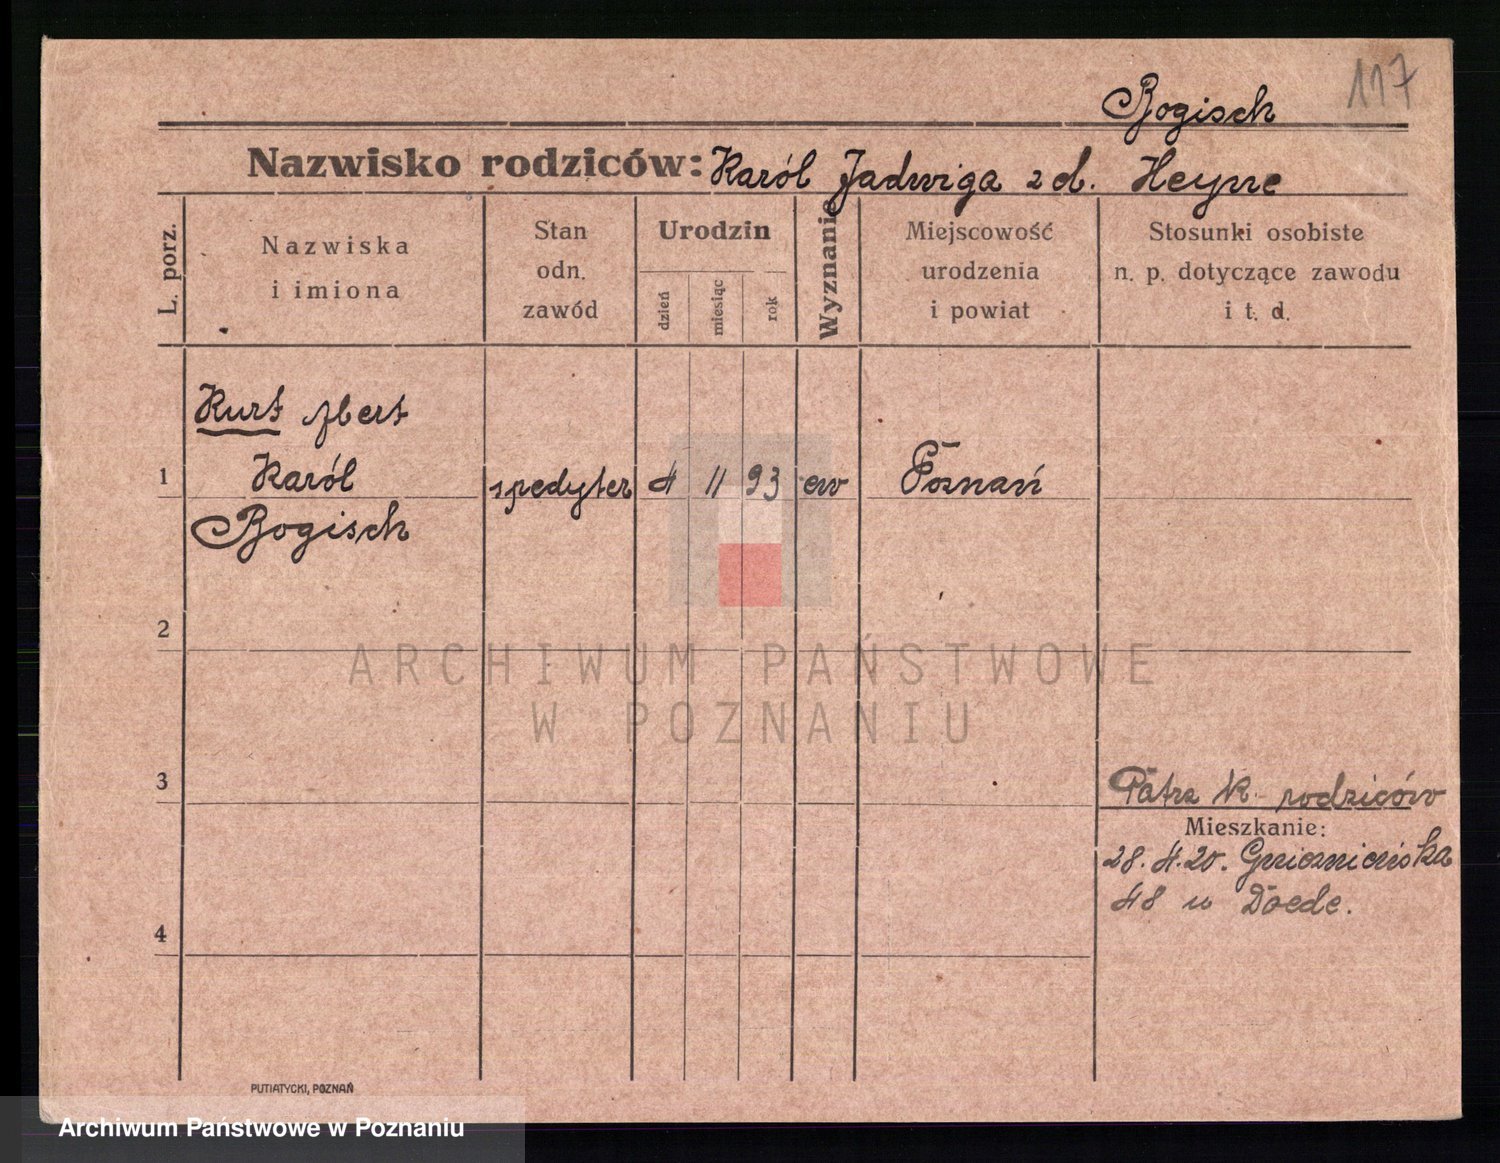 117
Bogisch
Nazwisko rodziców: Karól Jadwiga zd. Heyne
L. porz.
Nazwiska
i imiona
Stan
odn.
zawód
Urodzin
dzień
miesiąc
rok
Wyznanie
Miejscowość
urodzenia
i powiat
Stosunki osobiste
n. p. dotyczące zawodu
i t. d.
Kurt
1 Karól spedyter 4 11 93 ew Poznań
Bogisch
2
ARCHIWUM PAŃSTWOWE
W POZNANIU
3
Patrz K. rodziców
Mieszkanie:
28.4.20.
48 u Doede.
4
PUTIATYCKI, POZNAŃ
Archiwum Państwowe w Poznaniu